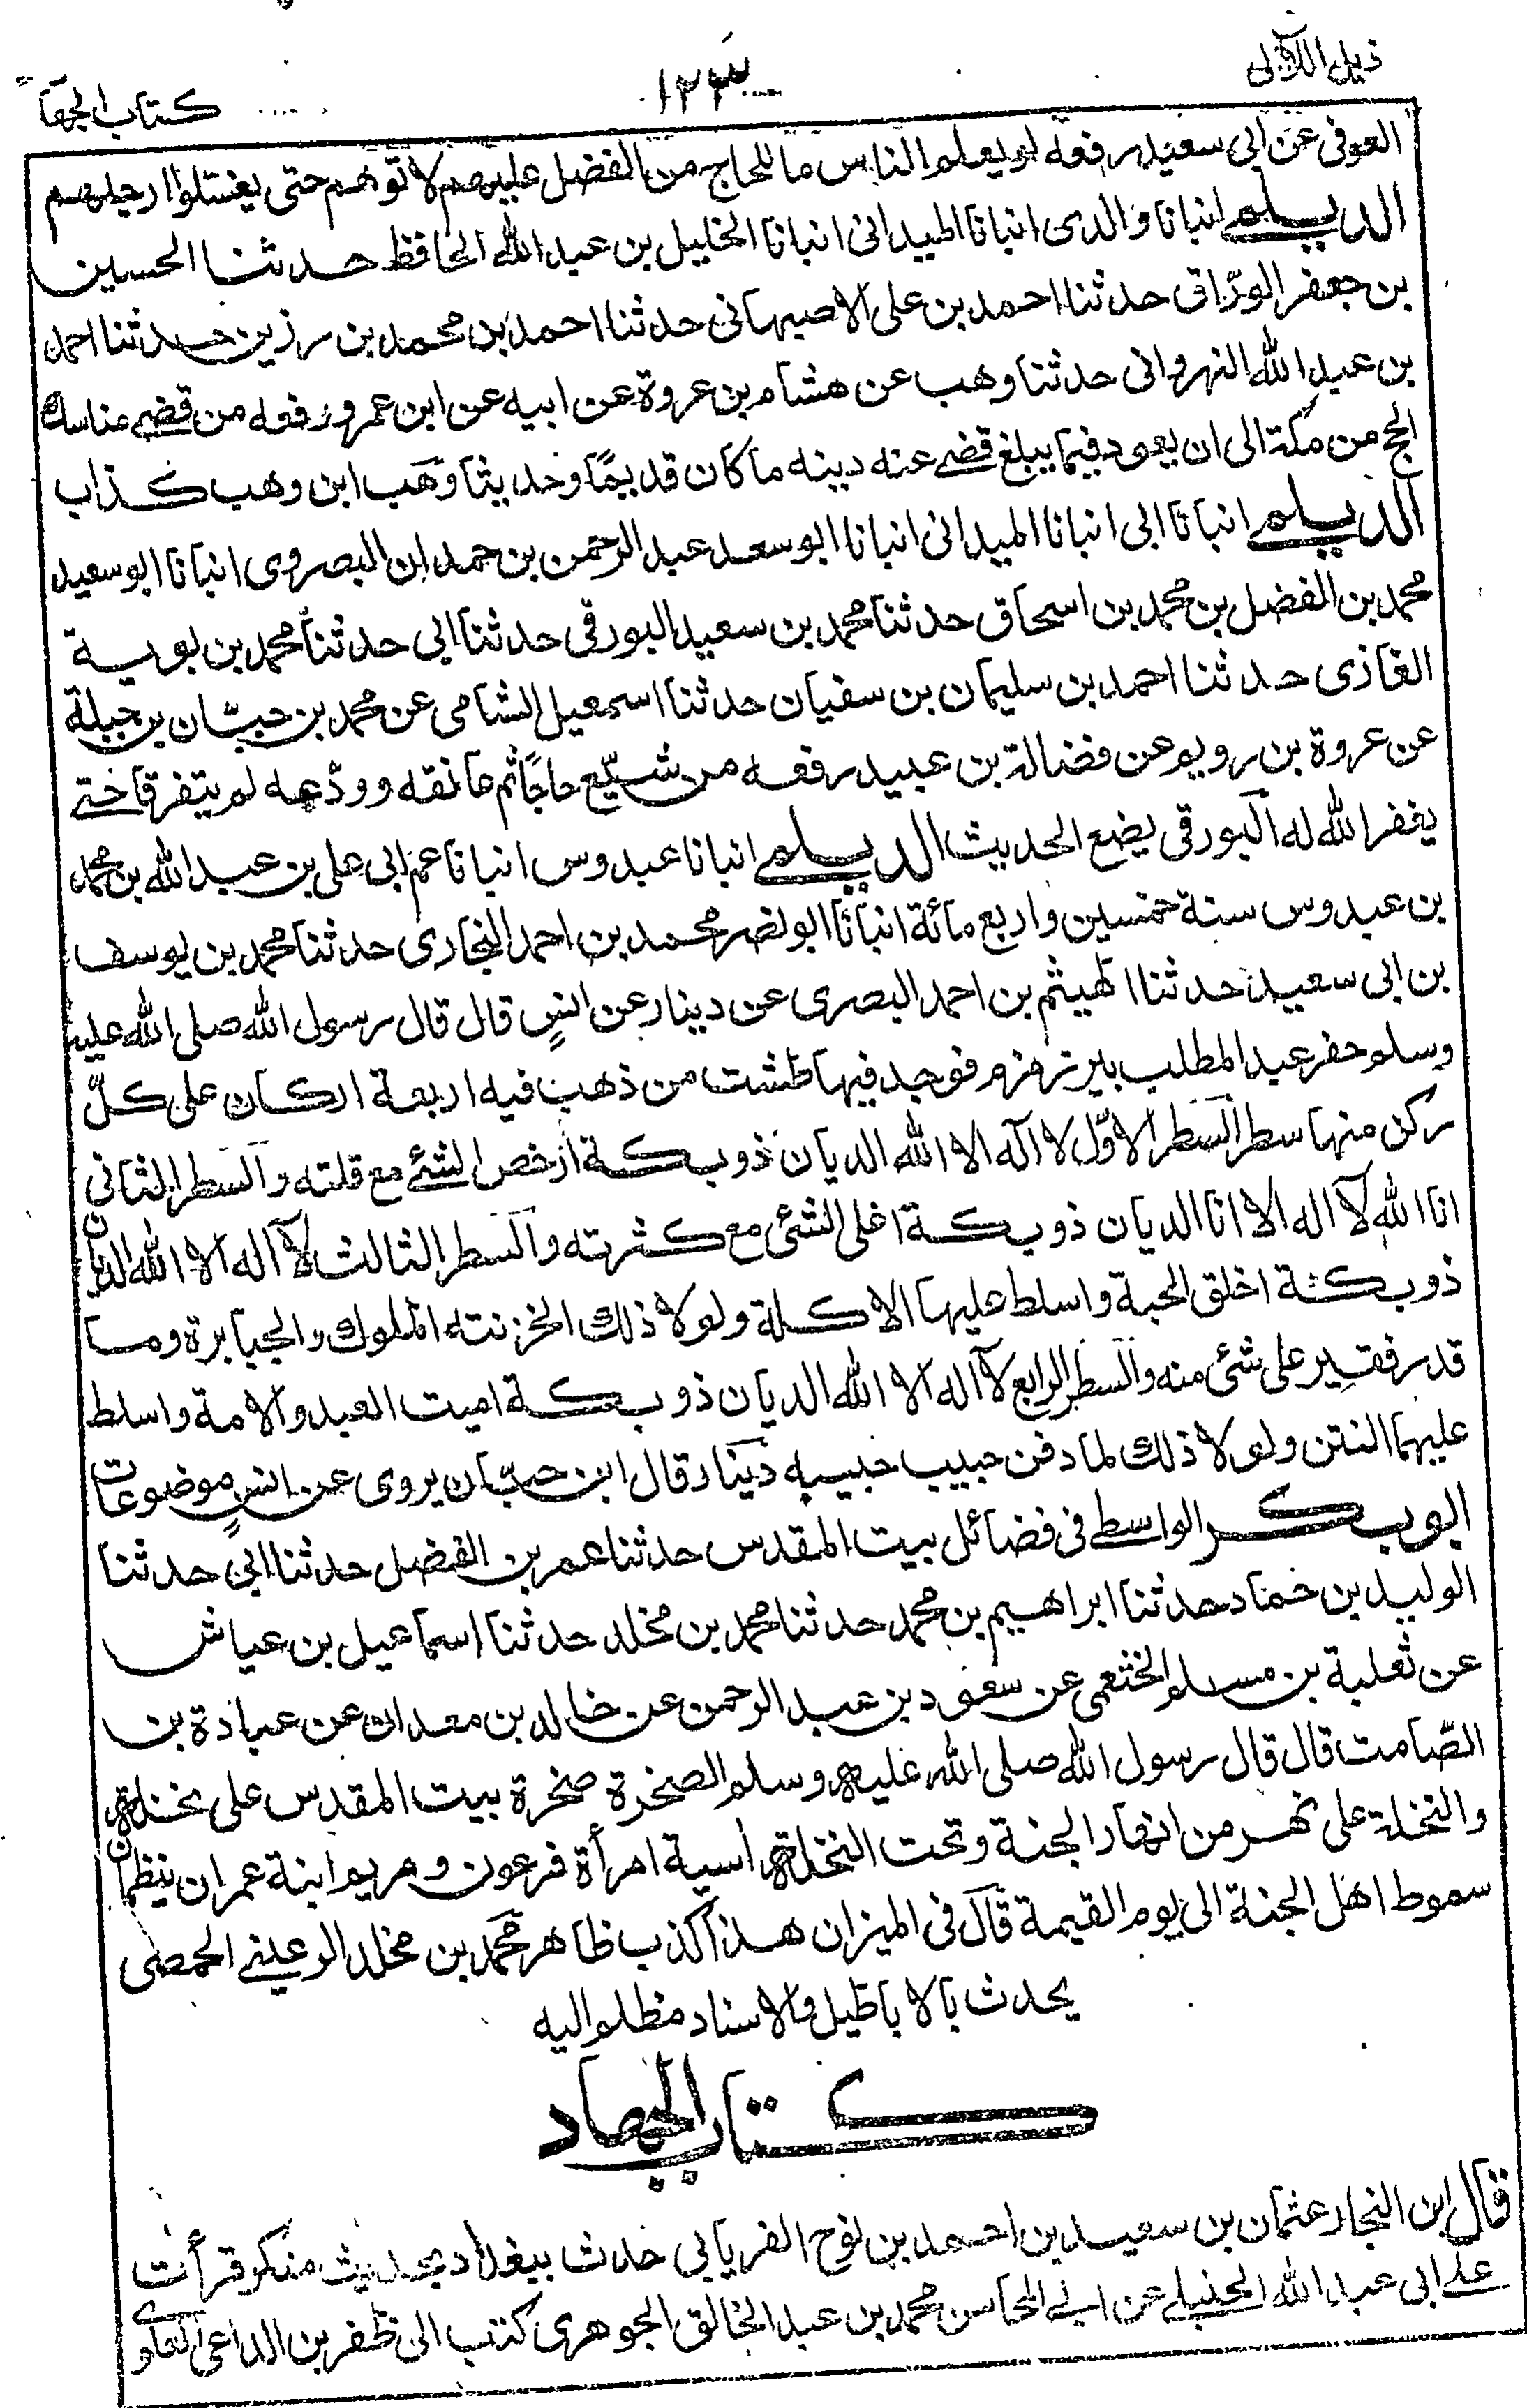 ذيل اللآلى
١٢٣
كتاب الجهاد
العوفى عن ابى سعيد رفعه لو يعلم الناس ما للحاج من الفضل عليهم لاتوهم حتى يغسلوا ارجلهم
الديلمى انبانا والدى انبانا الميدانى انبانا الخليل بن عبد الله الحافظ حدثنا الحسين
بن جعفر الورّاق حدثنا احمد بن على الاصبهانى حدثنا احمد بن محمد بن رزين حدثنا احمد
بن عبد الله النهروانى حدثنا وهب عن هشام بن عروة عن ابيه عن ابن عمرو رفعه من قضى مناسك
الحج من مكة الى ان يعود فيما يبلغ قضى عنه دينه ما كان قديمًا وحديثا وهب ابن وهب كذاب
الديلمى انبانا ابى انبانا الميدانى انبانا ابو سعد عبد الرحمن بن حمدان البصروى انبانا ابو سعيد
محمد بن الفضل بن محمد بن اسحاق حدثنا محمد بن سعيد البورقى حدثنا ابى حدثنا محمد بن بويه
الغازى حدثنا احمد بن سليمان بن سفيان حدثنا اسمعيل الشامى عن محمد بن حبّان بن جبلة
عن عروة بن رويم عن فضالة بن عبيد رفعه من شيّع حاجًا ثم عانقه وودّعه لم يتفرقا حتى
يغفر الله له البورقى يضع الحديث الديلمى انبانا عبدوس انبانا عم ابى على بن عبد الله بن محمد
بن عبدوس سنة خمسين واربع مائة انبانا ابو نصر محمد بن احمد البخارى حدثنا محمد بن يوسف
بن ابى سعيد حدثنا الهيثم بن احمد البصرى عن دينار عن انسٍ قال قال رسول الله صلى الله عليه
وسلم حفر عبد المطلب بير زمزم فوجد فيها طشت من ذهب فيه اربعة اركان على كلّ
ركن منها سطر السطر الاوّل لا اله الا الله الديان ذو بكة ارخص الشئ مع قلته والسطر الثانى
انا الله لا اله الا انا الديان ذو بكة اغلى الشئ مع كثرته والسطر الثالث لا اله الا الله الديان
ذو بكة اخلق الحبة واسلط عليها الاكلة ولولا ذلك لخزنته الملوك والجبابرة وما
قدر فقير على شئ منه والسطر الرابع لا اله الا الله الديان ذو بكة اميت العبد والامة واسلط
عليهما النتن ولولا ذلك لما دفن حبيب حبيبه دينار قال ابن حبّان يروى عن انسٍ موضوعات
ابو بكر الواسطى فى فضائل بيت المقدس حدثنا عمر بن الفضل حدثنا ابى حدثنا
الوليد بن حماد حدثنا ابراهيم بن محمد حدثنا محمد بن مخلد حدثنا اسماعيل بن عياش
عن ثعلبة بن مسلم الخثعمى عن سعود بن عبد الرحمن عن خالد بن معدان عن عبادة بن
الصّامت قال قال رسول الله صلى الله عليه وسلم الصخرة صخرة بيت المقدس على نخلة
والنخلة على نهر من انهار الجنة وتحت النخلة اسية امرأة فرعون ومريم ابنة عمران ينظمان
سموط اهل الجنة الى يوم القيمة قال فى الميزان هذا كذب ظاهر محمد بن مخلد الرعينى الحمصى
يحدث بالاباطيل والاسناد مظلم اليه
كتاب الجهاد
قال ابن النجار عثمان بن سعيد بن احمد بن نوح الفريابى حدث ببغداد بحديث منكر قرأت
على ابى عبد الله الحنبلى عن ابى المحاسن محمد بن عبد الخالق الجوهرى كتب الى ظفر بن الداعى العلوى